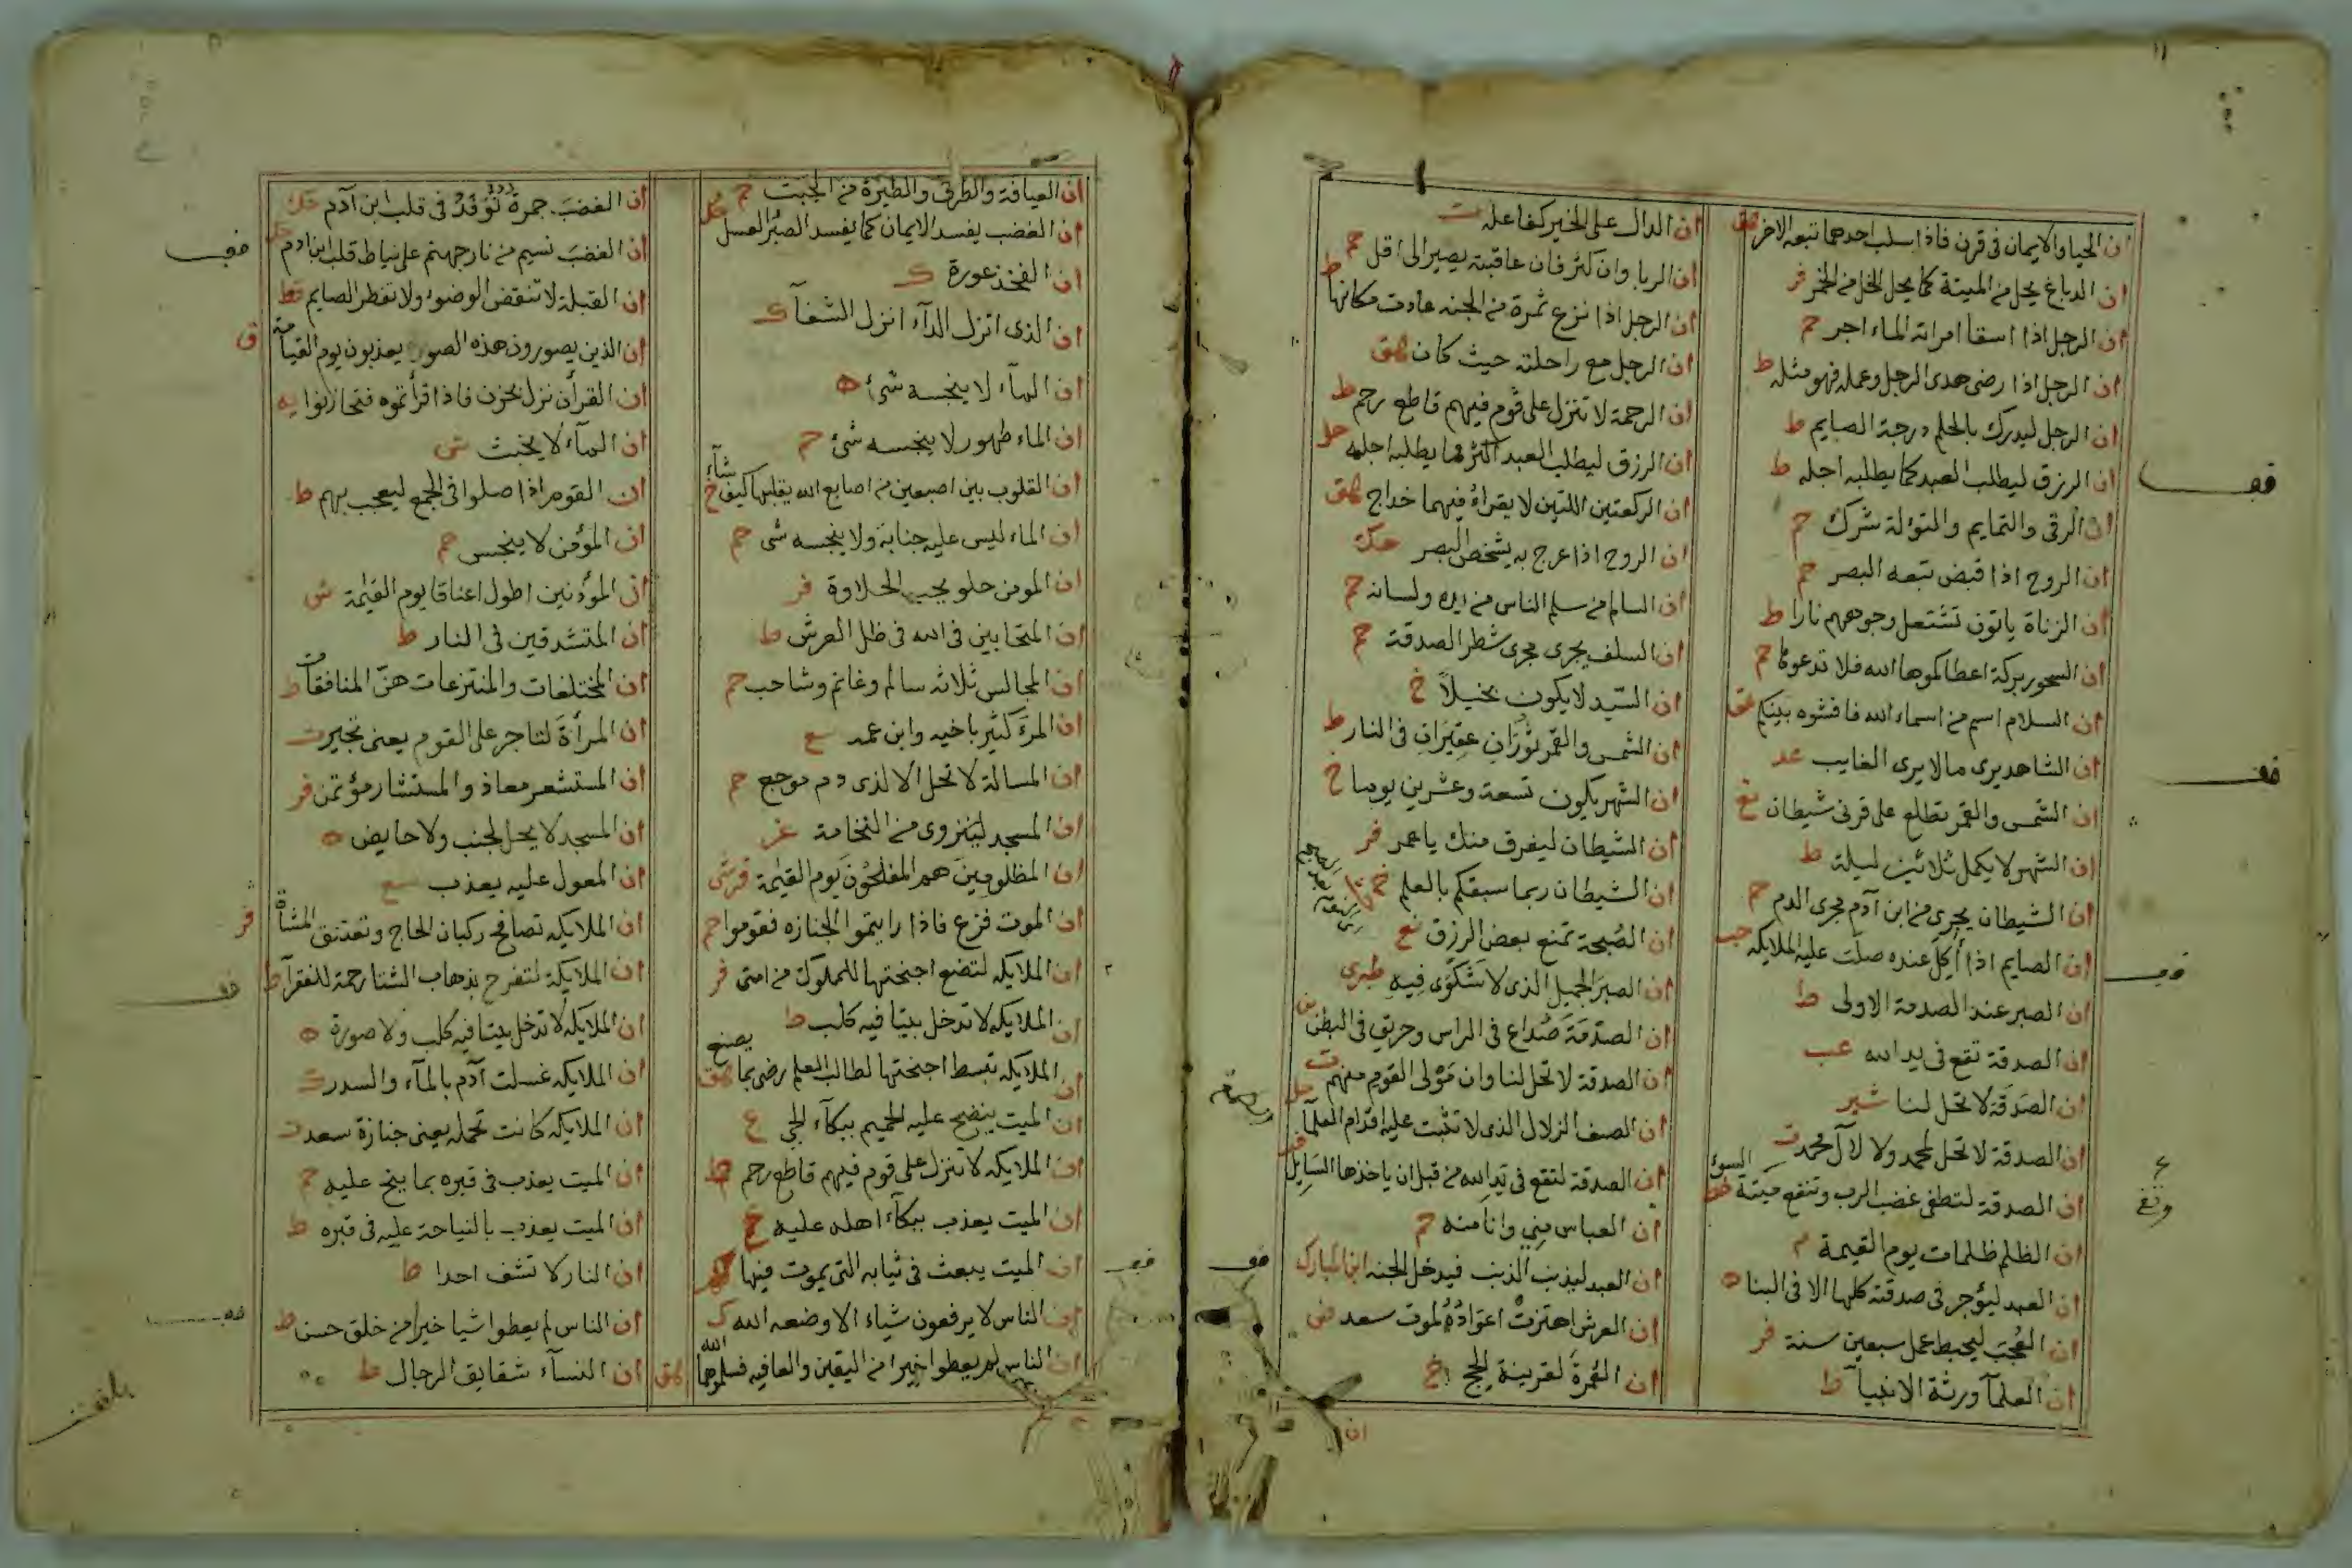 ان الحيا والايمان فى قرن فاذا سلب احدهما تبعه الاخر هق
ان الدباغ يحل من الميتة كما يحل الخل من الخمر فر
ان الرجل اذا اسقا امراته الماء اجر حم
ان الرجل اذا رضى هدى الرجل وعمله فهو مثله ط
ان الرجل ليدرك بالحلم درجة الصايم ط
ان الرزق ليطلب العبد كما يطلبه اجله ط
ان الرقى والتمايم والتولة شرك حم
ان الروح اذا قبض تبعه البصر حم
ان الزناة ياتون تشتعل وجوههم نارا ط
ان السحور بركة اعطاكموها الله فلا تدعوها حم
ان السلام اسم من اسماء الله فافشوه بينكم هق
ان الشاهد يرى مالا يرى الغايب عد
ان الشمس والقمر تطلع على قرنى شيطان
ان الشهر لا يكمل ثلاثين ليلة ط
ان الشيطان يجرى من ابن آدم مجرى الدم حم
ان الصايم اذا أكل عنده صلت عليه الملايكه حب
ان الصبر عند الصدمة الاولى ط
ان الصدقة تقع فى يد الله
ان الصدقة لا تحل لنا شير
ان الصدقة لا تحل لمحمد ولا لآل محمد ت
ان الصدقة لتطفى غضب الرب وتنفع ميتة السوء
ان الظلم ظلمات يوم القيمة م
ان العبد ليؤجر فى صدقته كلها الا فى البنا ه
ان العجب ليحبط عمل سبعين سنة فر
ان العلمآ ورثة الانبيآ ط
ان الدال على الخير كفاعله ت
ان الربا وان كثر فان عاقبته يصير الى اقل حم
ان الرجل اذا نزع ثمرة من الجنه عادت مكانها ط
ان الرجل مع راحلته حيث كان هق
ان الرحمة لا تنزل على قوم فيهم قاطع رحم ط
ان الرزق ليطلب العبد اكثر مما يطلبه اجله حل
ان الركعتين اللتين لا يقراء فيهما خداج هق
ان الروح اذا عرج به يشخص البصر حك
ان السالم من سلم الناس من يده ولسانه حم
ان السلف يجرى مجرى شطر الصدقة حم
ان السيد لا يكون بخيلا خ
ان الشمس والقمر ثوران عقيران فى النار ط
ان الشهر يكون تسعة وعشرين يوما خ
ان الشيطان ليفرق منك يا عمر فر
ان الشيطان ربما سبقكم بالعلم
ان الصبحة تمنع بعض الرزق نع
ان الصبر الجميل الذى لا شكوى فيه طبرى
ان الصدقة صداع فى الراس وحريق فى البطن
ان الصدقة لا تحل لنا وان مولى القوم منهم ت
ان الصف الزلال الذى لا تثبت عليه اقدام العلمآ
ان الصدقة لتقع فى يد الله من قبل ان ياخذها السايل
ان العباس مني وانا منه حم
ان العبد ليذنب الذنب فيدخل الجنه ابن المبارك
ان العرش اهتزت اعواده لموت سعد ض
ان العمرة لقرينة الحج خ
ان
ان العيافة والطرق والطيرة من الجبت حم
ان الغضب يفسد الايمان كما يفسد الصبر العسل
ان الفخذ عورة ك
ان الذى انزل الدآء انزل الشفآ ك
ان المآء لا ينجسه شئ ه
ان الماء طهور لا ينجسه شئ حم
ان القلوب بين اصبعين من اصابع الله يقلبها كيف شآء
ان الماء ليس عليه جنابة ولا ينجسه شى حم
ان المومن حلو يحب الحلاوة فر
ان المتحابين فى الله فى ظل العرش ط
ان المجالس ثلاثه سالم وغانم وشاحب حم
ان المرء كثير باخيه وابن عمه سع
ان المسالة لا تحل الا لذى دم موجع حم
ان المسجد لينزوى من النخامة
ان المظلومين هم المفلحون يوم القيمة
ان الموت فزع فاذا رايتموا الجنازه فقوموا حم
ان الملايكه لتضع اجنحتها للمملوك من امتى فر
ان الملايكه لا تدخل بيتا فيه كلب ط
ان الملايكه تبسط اجنحتها لطالب العلم رضى بما يصنع هق
ان الميت ينضح عليه الحميم ببكآء الحي ع
ان الملايكه لا تنزل على قوم فيهم قاطع رحم ط
ان الميت يعذب ببكآء اهله عليه خ
ان الميت يبعث فى ثيابه التى يموت فيها
ان الناس لا يرفعون شياء الا وضعه الله ك
ان الناس لم يعطوا خيرا من اليقين والعافيه فسلوهما الله هق
ان الغضب جمرة توقد فى قلب ابن آدم حك
ان الغضب نسيم من نار جهنم على نياط قلب ابن ادم
ان القبلة لا تنقض الوضوء ولا تفطر الصايم
ان الذين يصورون هذه الصور يعذبون يوم القيامة ق
ان القرآن نزل بحزن فاذا قرأتموه فتحازنوا يه
ان المآء لا يخبث ش
ان القوم اذا صلوا فى الجمع ليعجب بهم ط
ان المؤمن لا ينجس حم
ان المؤذنين اطول اعناقا يوم القيمة ش
ان المتشدقين فى النار ط
ان المختلعات والمنتزعات هن المنافقات ط
ان المرأة لتاجر على القوم يعنى تجير ت
ان المستشير معاذ والمستشار مؤتمن فر
ان المسجد لا يحل لجنب ولا حايض ه
ان المعول عليه يعذب سع
ان الملايكه تصافح ركبان الحاج وتعتنق المشاة فر
ان الملايكة لتفرح بذهاب الشتا رحمة للفقرآ ط
ان الملايكه لا تدخل بيتا فيه كلب ولا صورة ه
ان الملايكه غسلت آدم بالمآء والسدر ك
ان الملايكه كانت تحمله يعنى جنازة سعد ت
ان الميت يعذب فى قبره بما ينح عليه م
ان الميت يعذب بالنياحة عليه فى قبره ط
ان النار لا تشف احدا ط
ان الناس لم يعطوا شيا خيرا من خلق حسن ط
ان النسآء شقايق الرجال ط